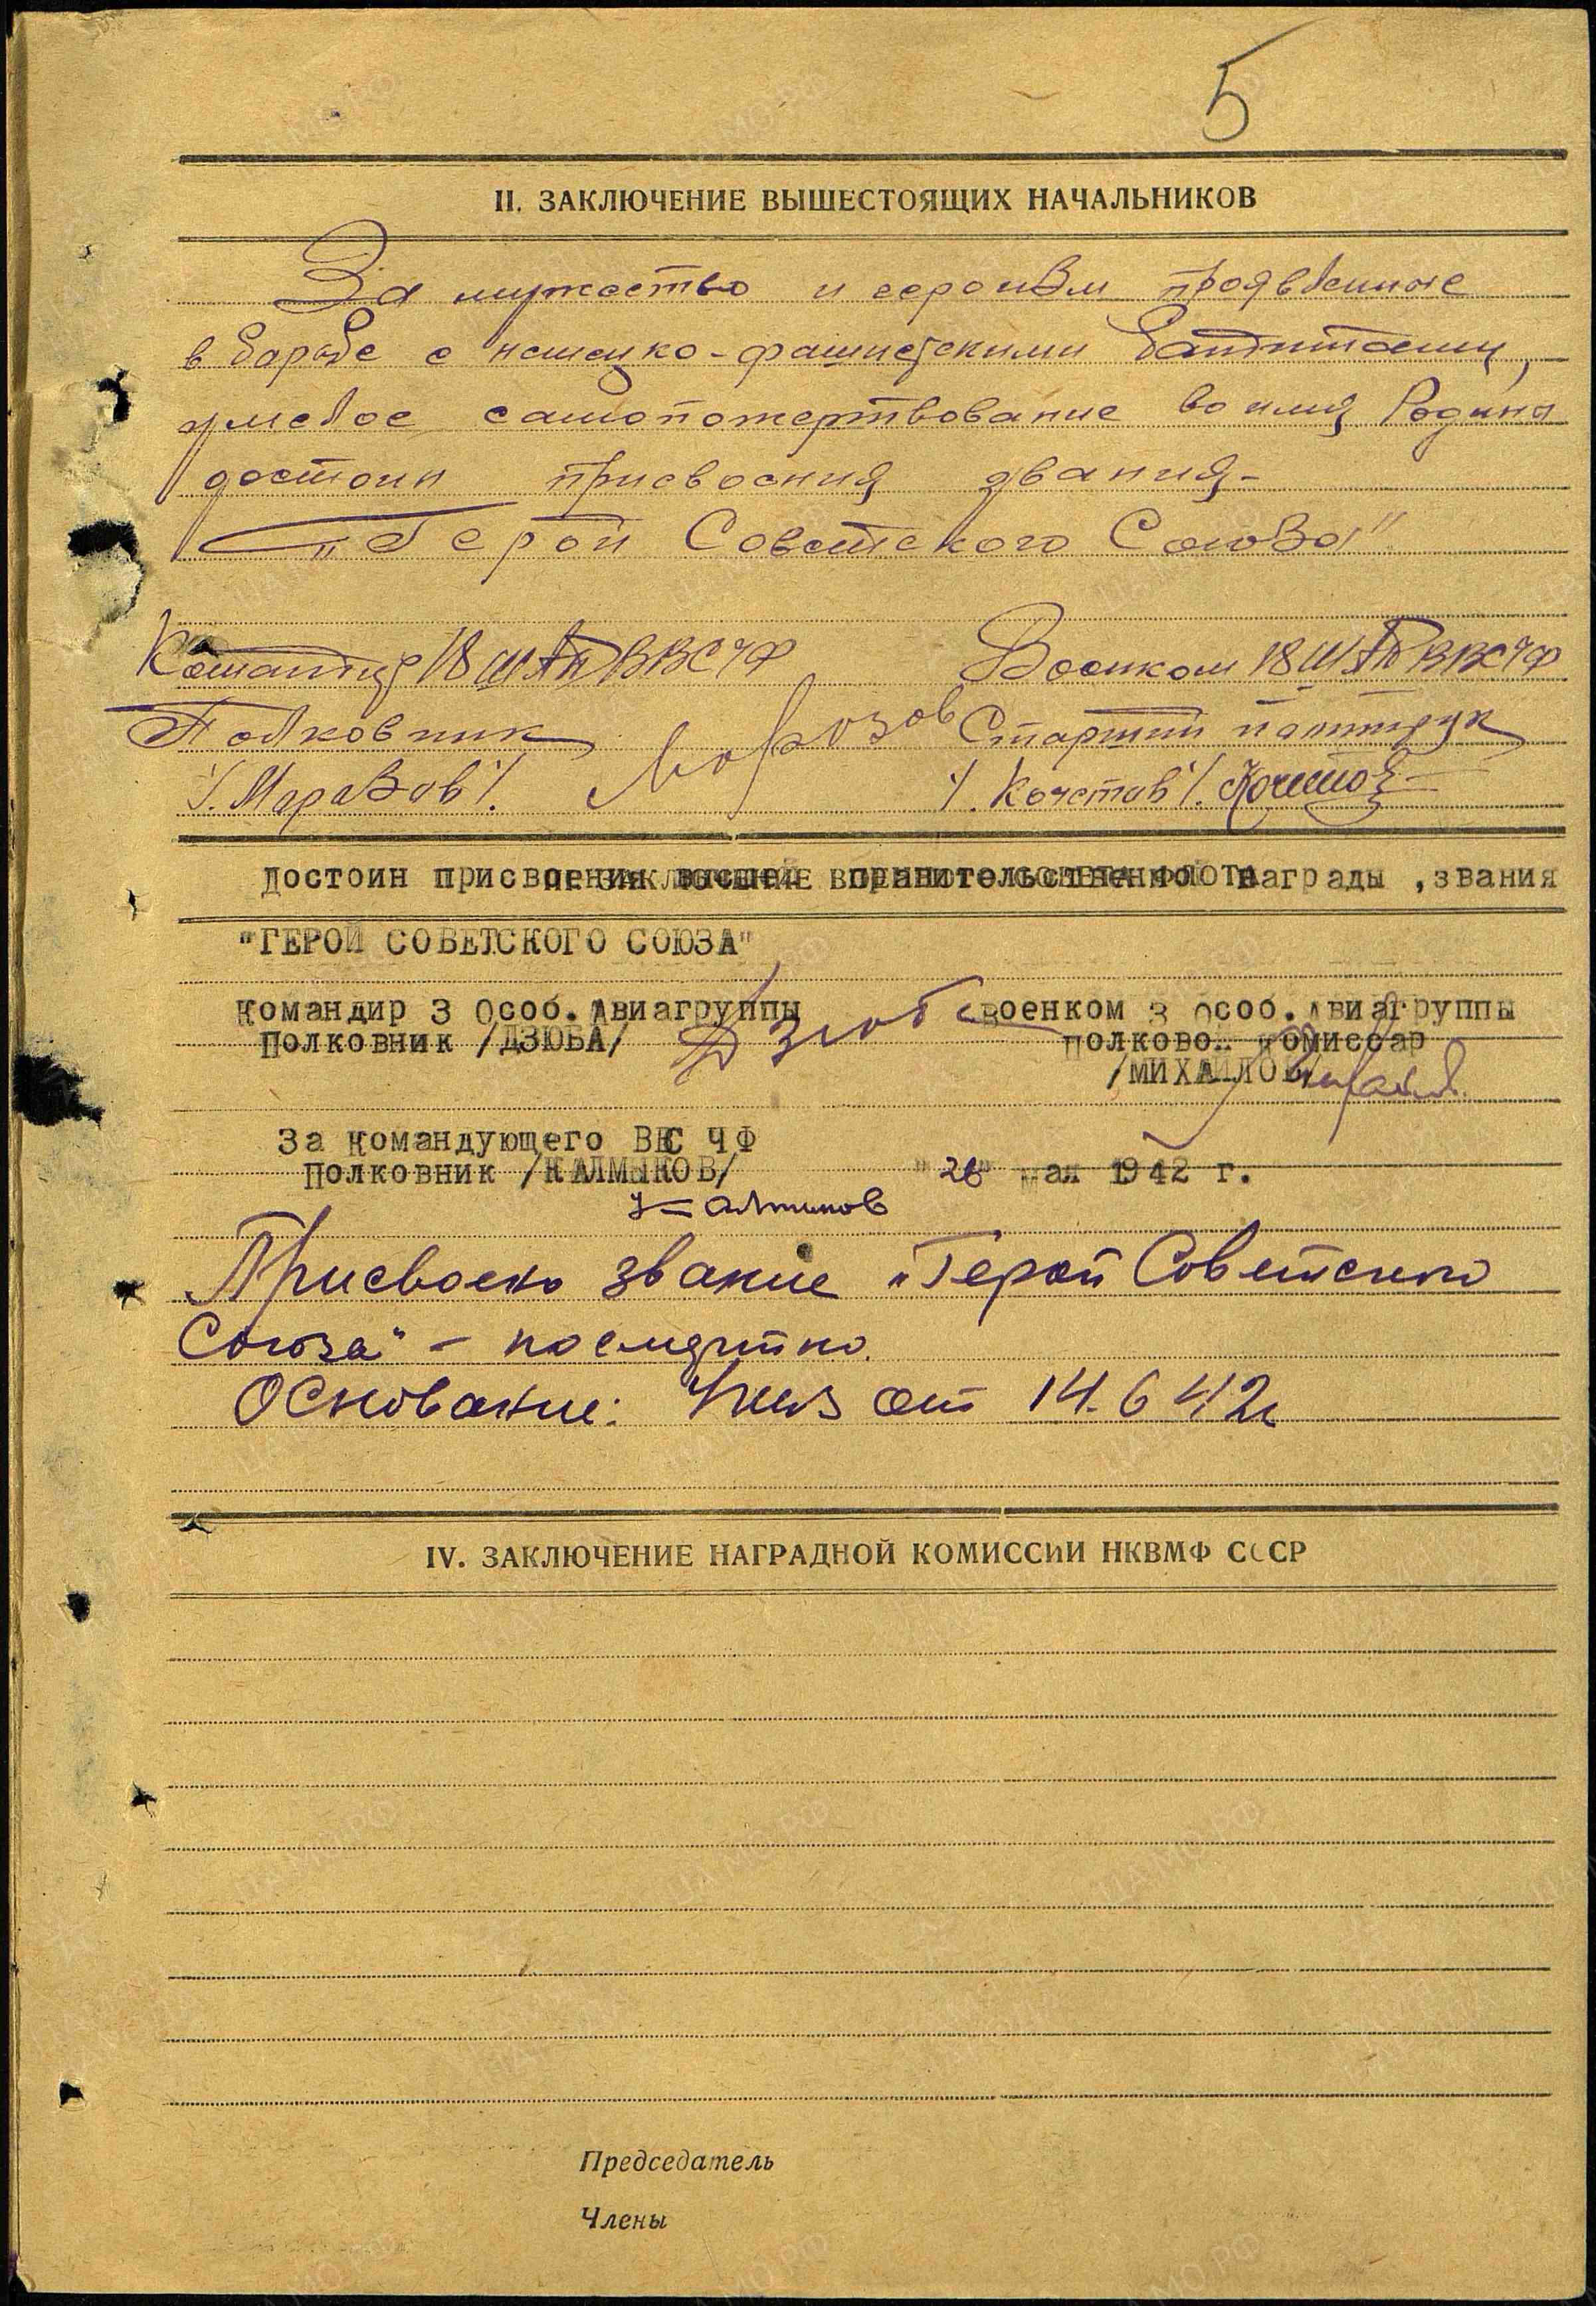 5
II. ЗАКЛЮЧЕНИЕ ВЫШЕСТОЯЩИХ НАЧАЛЬНИКОВ
За мужество и героизм проявленные
в борьбе с немецко-фашистскими бандитами,
умелое самопожертвование во имя Родины
достоин присвоения звания-
„Герой Советского Союза"
Командир 18 ШАП ВВС ЧФ Военком 18 ШАП ВВС ЧФ
Полковник Морозов Старший политрук
/.Морозов/. /.Кочетов/. Кочетов
Достоин присвоения высшей правительственной награды ,звания
"ГЕРОЙ СОВЕТСКОГО СОЮЗА"
Командир 3 Особ.Авиагруппы Военком 3 особ.Авиагруппы
Полковник /ДЗЮБА/ Дзюба Полково.. комиссар
/МИХАЙЛОВ/
За Командующего ВВС ЧФ
Полковник /КАЛМЫКОВ/ "26" мая 1942 г.
Присвоено звание „Герой Советского
Союза" - посмертно.
Основание: Указ от 14.6 42г
IV. ЗАКЛЮЧЕНИЕ НАГРАДНОЙ КОМИССИИ НКВМФ СССР
Председатель
Члены